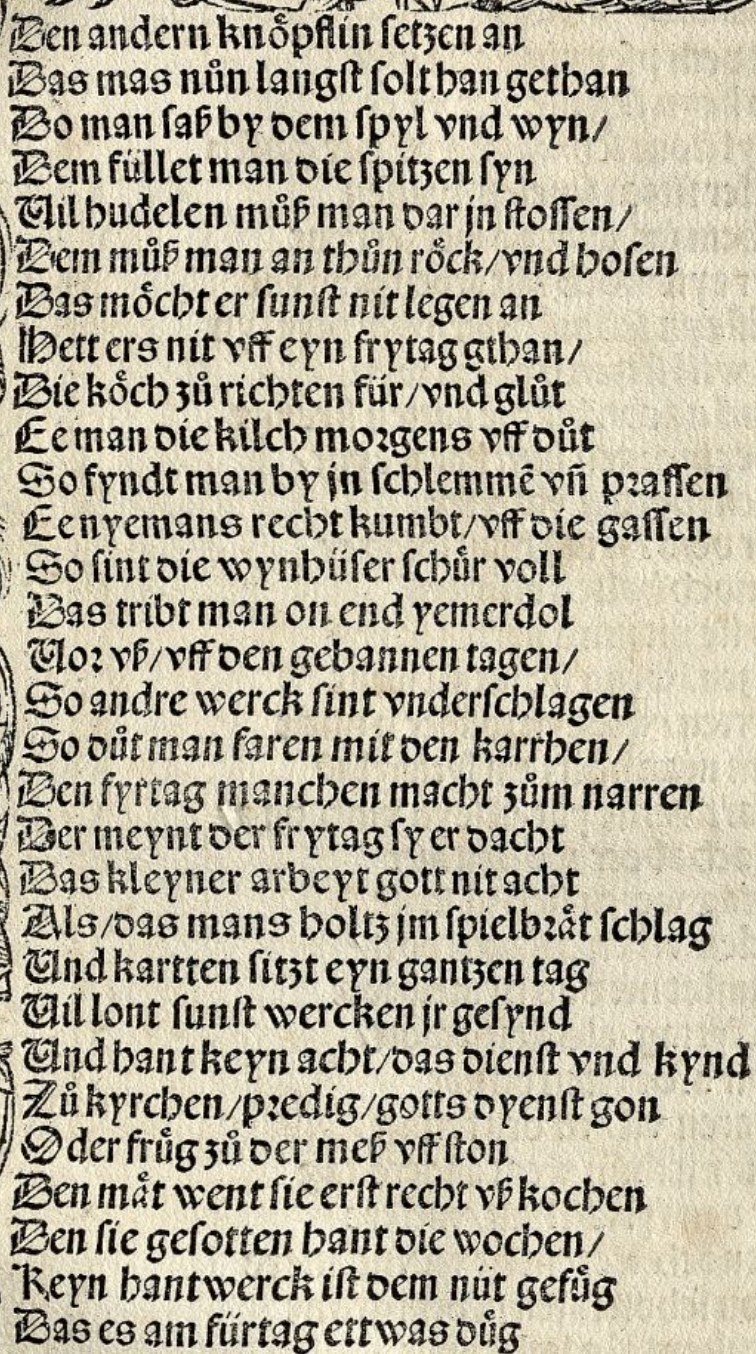 Den andern knoͤpflin ſetzen an
Das mas nuͦn langſt ſolt han gethan
Do man ſaß by dem ſpyl vnd wyn/
Dem füllet man die ſpitzen ſyn
Vil hudelen muͦß man dar jn ſtoſſen/
Dem muͦß man an thuͦn roͤck/vnd hoſen
Das moͤcht er ſunſt nit legen an
Hett ers nit vff eyn frytag gthan/
Die koͤch zuͦ richten für/vnd gluͦt
Ee man die kilch moꝛgens vff duͦt
So fyndt man by jn ſchlemmē vñ pꝛaſſen
Ee nyemans recht kumbt/vff die gaſſen
So ſint die wynhüſer ſchuͤr voll
Das tribt man on end yemerdol
Voꝛ vß/vff den gebannen tagen/
So andre werck ſint vnderſchlagen
So duͦt man faren mit den karrhen/
Den fyrtag manchen macht zuͦm narren
Der meynt der frytag ſy er dacht
Das kleyner arbeyt gott nit acht
Als/das mans holtz jm ſpielbꝛaͤt ſchlag
Vnd kartten ſitzt eyn gantzen tag
Vil lont ſunſt wercken jr geſynd
Vnd hant keyn acht/das dienſt vnd kynd
Zuͦ kyrchen/pꝛedig/gotts dyenſt gon
Oder fruͤg zuͦ der meß vff ſton
Den maͤt went ſie erſt recht vß kochen
Den ſie geſotten hant die wochen/
Keyn hantwerck iſt dem nüt gefuͤg
Das es am fürtag ettwas duͤg